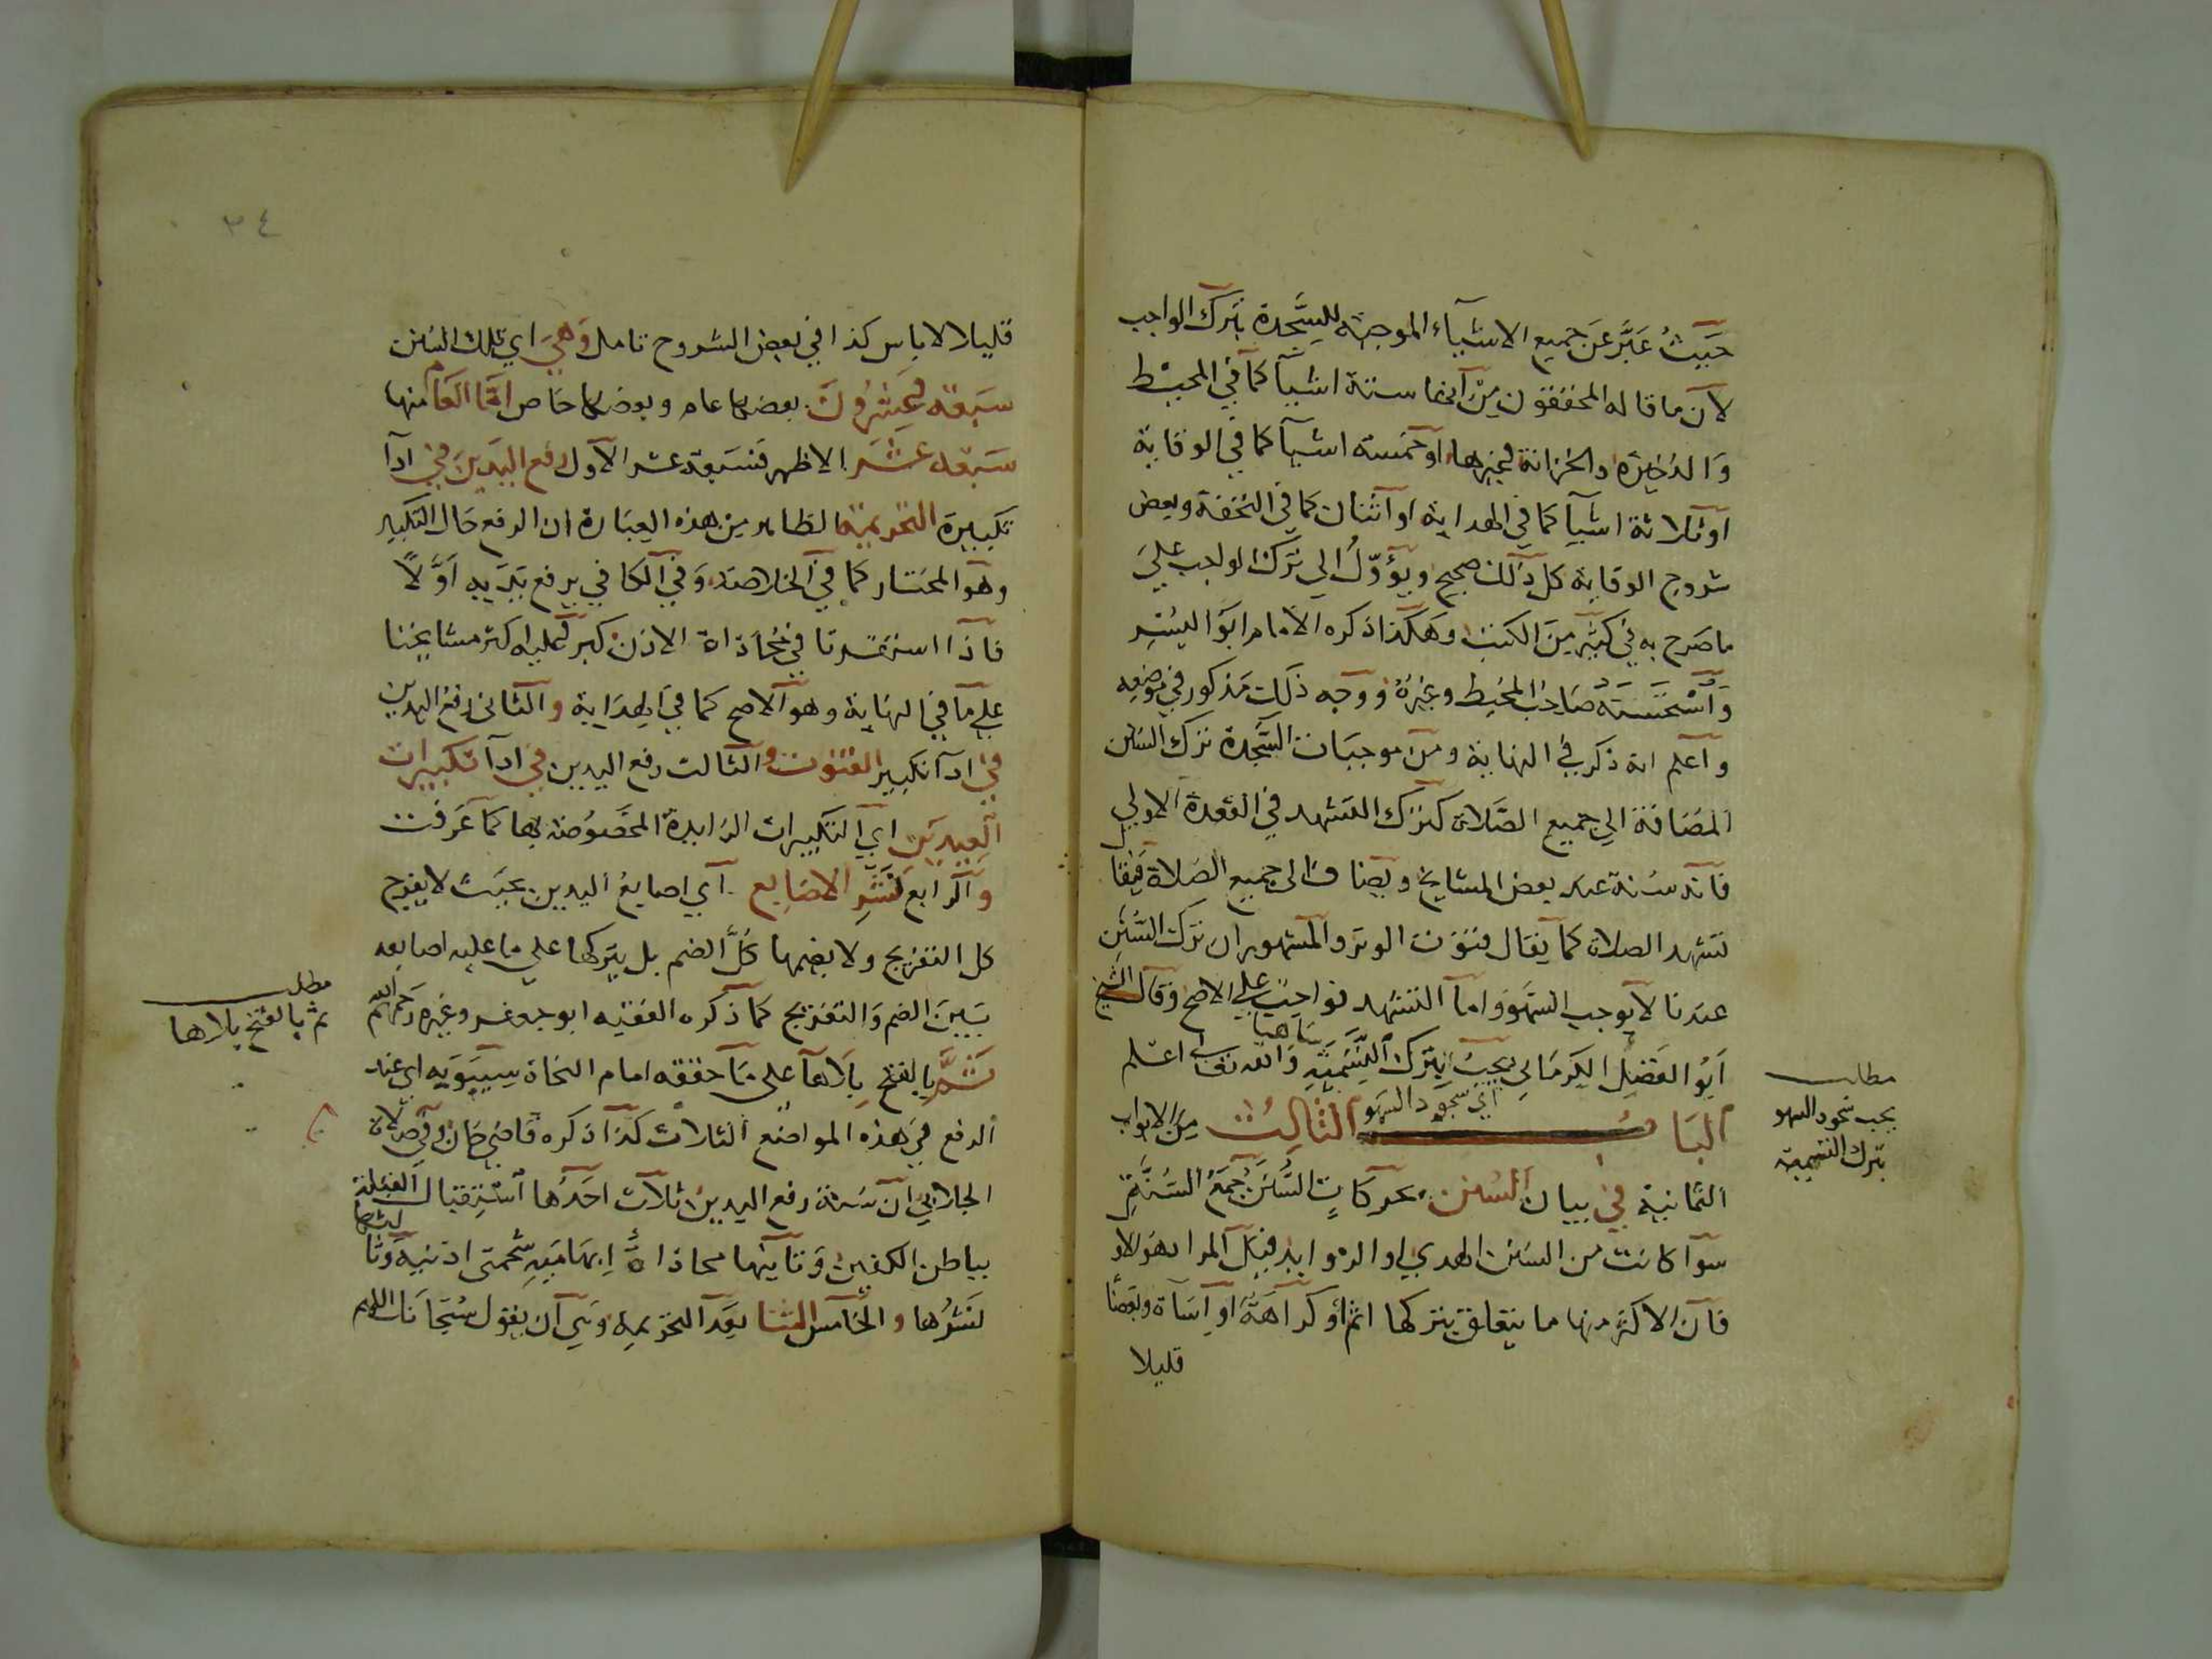 حَيثُ عَبَّرَ عَن جميع الاشيآء الموجبة للسَّجدة بترك الواجب
لان ما قاله المحققون من انها ستة اشيآ كما في المحيط
وَالذخيرة والخزانة وغيرها او خمسة اشيآ كما في الوقاية
او ثلاثة اشيآ كما في الهداية او اثنان كما في التحفة وبعض
شروح الوقاية كل ذلك صحيح ويؤوّلُ الي ترك الواجب عليَ
ما صَرح به في كثير مِنَ الكتب وهَكذا ذكره الامام ابوَاليُسرِ
وَاسْتَحسَنَهُ صَاحِبُ المحيط وغيرُهُ ووجه ذلك مَذكور في موضعِه
واعلم انه ذكر في النهاية ومن موجبَات السَّجدة ترك السنن
المضَافة الي جميع الصَّلاة كترك التشهد في القعدة الاولي
فانه سُنة عند بعض المشايخ ويضاف الى جميع الصَلاة فيقا
تشهد الصلاة كما يقال قنوت الوتر والمشهور ان ترك السُّنَنِ
عندنا لا يوجب السَّهوَ واما التشهد فواجبٌ علي الاصح وَقالَ الشيخ
ابُو الفَضلِ الكَرمَاني يجبُ بترك التَّسْمِيَةِ سَاهيا وَالله تعالى اعلم
اي سجود السهو
البَابُ الثالِث مِنَ الابواب
الثمانية في بيان السُنن بحركاتِ السُّنَنُ جمعُ السُنَّةِ
سوآ كانت من السنن الهدي او الزوايد قبل المراد هَولاد
فان الاكثر منها ما يتعلق بتركها اثم او كراهَة او اسَآة وبعضًا
قليلا
مطلب
يجب سجود السهو
بترك التسمية
٣٤
قليلا لا باس كذا في بعض الشروح تامل وَهيَ اي تلك السُنن
سَبعَة وعِشرُونَ بعضها عام وبعضها خاص امَّا العَام منها
سَبعَة عشَرَ الاظهر فسَبعة عشر الاول رفع اليَدينَ في ادآ
تكبيرة التحريمة الظاهر من هذه العِبَارة ان الرفع حَال التكبير
وهو المختار كما في الخلاصة وَفي الكافي يرفع يَدَيه اوَّلًا
فاذا استقرتا في مُحَاذاة الاذن كبر وعليه اكثر مشايخنا
علي مَا في النهَاية وهو الاصح كما في الهِدَاية والثاني رفع اليدين
في ادآ تكبير القنوت والثالث رفع اليدين في ادآ تكبيرات
العِيدينِ اي التكبيرات الزايدة المخصُوصة بها كما عَرفت
وَالرابع نَشرُ الاصَابِع اي اصابعُ اليدين بحيَث لا يفرج
كل التفريج ولا يضمها كُلَّ الضم بل يتركها على ما عليه اصابعه
بَينَ الضم وَالتفريج كما ذكره الفقيه ابو جعفر وغيره رَحمهم الله
ثَمَّ بالفتح بِلاهَا على مَا حققه امام النحاة سِيبَوَيه اي عند
الرفع في هذه المواضع الثلاث كذا ذكره قاضي خان وفي صلاة
الجلابي ان سُنة رفع اليدين ثلاث احَدُها استِقبَال القبلة
بباطن الكفين وَثانيها محاذاةُ ابهامَيهِ شحمتى اذنيه وَثا لثها
نَشرُها والخامس الثنا بعَد التحريمة وهَي ان يقول سُبحَانك اللهم
مطلب
ثم بالفتح بلاها